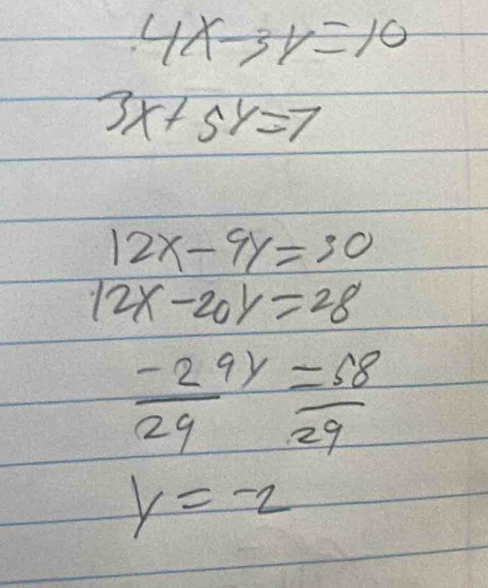 4x-3y=10
3x+5y=7
12x-9y=30
12x-20y=28
-29y =58
29 29
y=-2